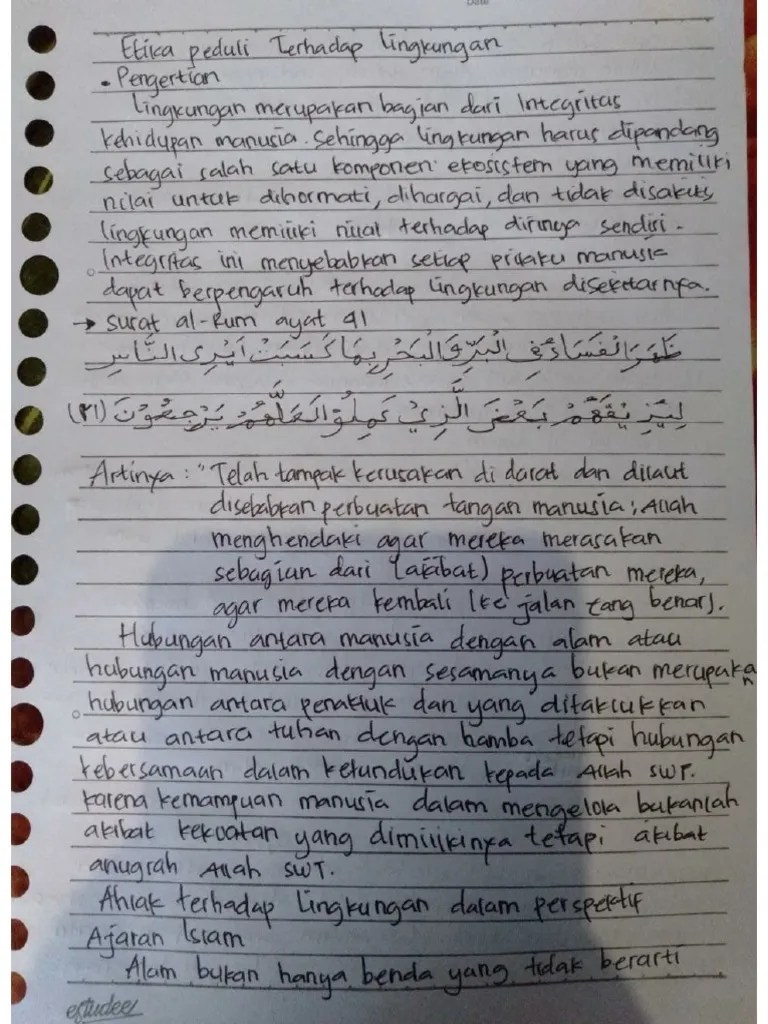 Date
Etika peduli Terhadap lingkungan
• Pengertian
lingkungan merupakan bagian dari Integritas
kehidupan manusia. Sehingga lingkungan harus dipandang
sebagai salah satu komponen ekosistem yang memiliki
nilai untuk dihormati, dihargai, dan tidak disakiti,
lingkungan memiliki nilai terhadap dirinya sendiri.
Integritas ini menyebabkan setiap prilaku manusia
dapat berpengaruh terhadap lingkungan disekitarnya.
→ surat al-Rum ayat 41
ظَهَرَ الْفَسَادُ فِي الْبَرِّ وَالْبَحْرِ بِمَا كَسَبَتْ اَيْدِى النَّاسِ
لِيُذِيْقَهُمْ بَعْضَ الَّذِيْ عَمِلُوْا لَعَلَّهُمْ يَرْجِعُوْنَ (٤١)
Artinya : "Telah tampak kerusakan di darat dan dilaut
disebabkan perbuatan tangan manusia; Allah
menghendaki agar mereka merasakan
sebagian dari (akibat) perbuatan mereka,
agar mereka kembali (ke jalan yang benar).
Hubungan antara manusia dengan alam atau
hubungan manusia dengan sesamanya bukan merupakan
hubungan antara penakluk dan yang ditaklukkan
atau antara tuhan dengan hamba tetapi hubungan
kebersamaan dalam ketundukan kepada Allah SWT.
karena kemampuan manusia dalam mengelola bukanlah
akibat kekuatan yang dimilikinya tetapi akibat
anugrah Allah SWT.
Ahlak terhadap lingkungan dalam perspektif
Ajaran Islam
Alam bukan hanya benda yang tidak berarti
estudees